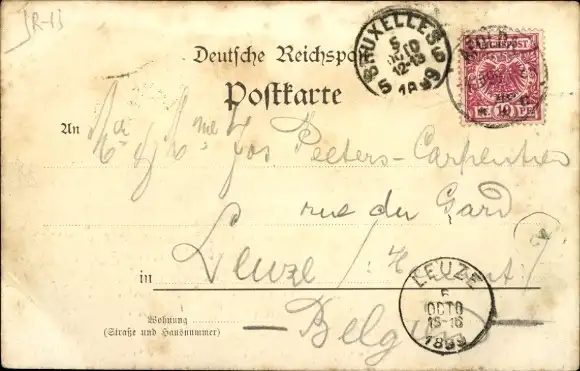 JR-13
Deutsche Reichspo
Postkarte
BRUXELLES 5
5
OCTO
12-13
1899
5
REICHSPOST
10 PF
An Mr & Mme Jos Peeters-Carpentier
rue du Gard
in Leuze
Belgique
LEUZE
6
OCTO
15-16
1899
Wohnung
(Straße und Hausnummer)